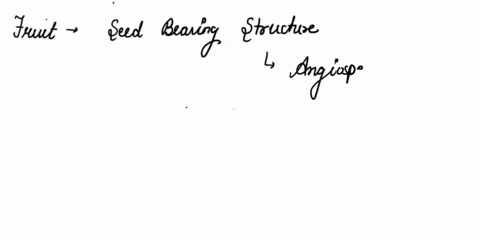 Fruit → Seed Bearing Structure
↳ Angiosp